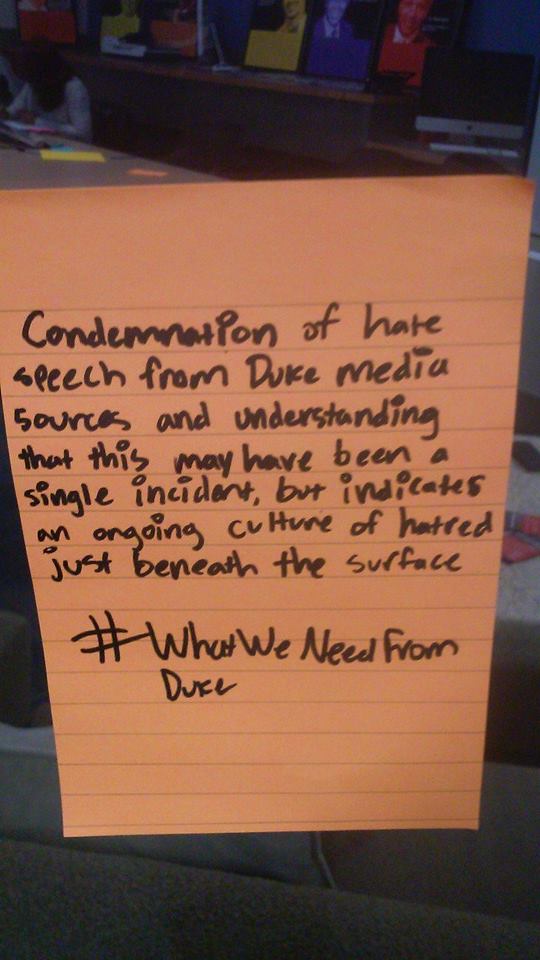 Condemnation of hate
speech from Duke media
sources and understanding
that this may have been a
single incident, but indicates
an ongoing culture of hatred
just beneath the surface
#WhatWeNeedFrom
Duke